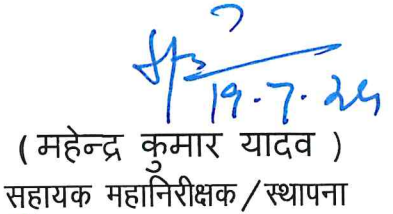 19.7.24
( महेन्द्र कुमार यादव )
सहायक महानिरीक्षक / स्थापना